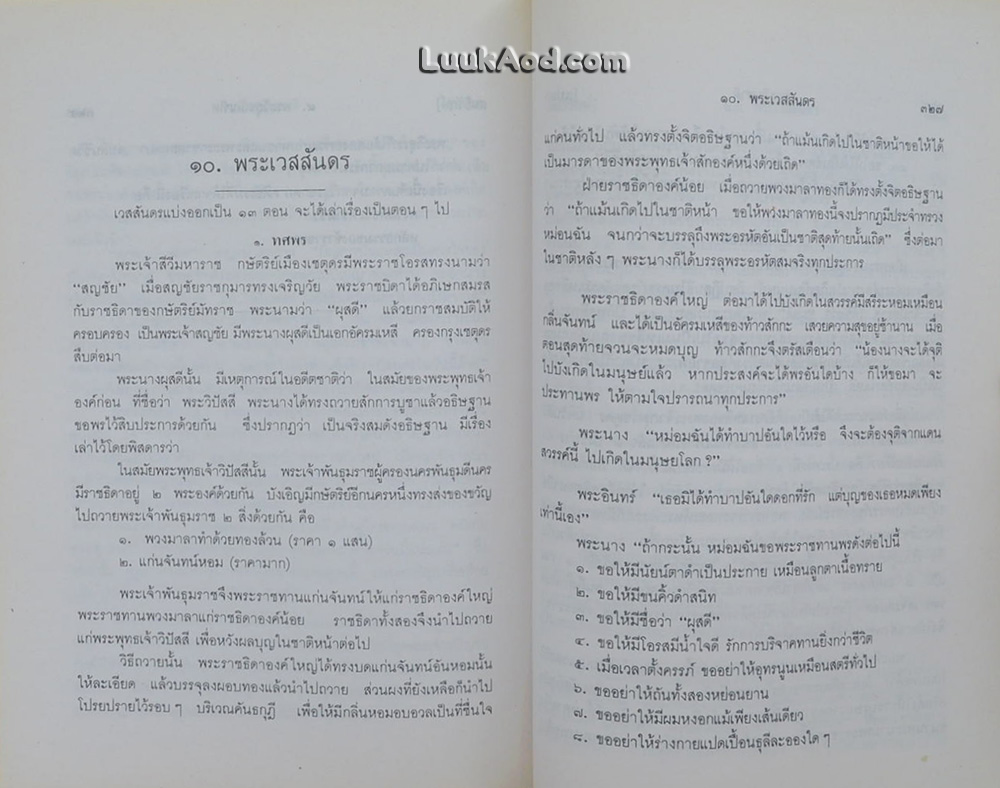 LuukAod.com
๑๐. พระเวสสันดร
เวสสันดรแบ่งออกเป็น ๑๓ ตอน จะได้เล่าเรื่องเป็นตอน ๆ ไป
๑. ทศพร
พระเจ้าสีวีมหาราช กษัตริย์เมืองเชตุดรมีพระราชโอรสทรงนามว่า
“สญชัย” เมื่อสญชัยราชกุมารทรงเจริญวัย พระราชบิดาได้อภิเษกสมรส
กับราชธิดาของกษัตริย์มัทราช พระนามว่า “ผุสดี” แล้วยกราชสมบัติให้
ครอบครอง เป็นพระเจ้าสญชัย มีพระนางผุสดีเป็นเอกอัครมเหสี ครองกรุงเชตุดร
สืบต่อมา
พระนางผุสดีนั้น มีเหตุการณ์ในอดีตชาติว่า ในสมัยของพระพุทธเจ้า
องค์ก่อน ที่ชื่อว่า พระวิปัสสี พระนางได้ทรงถวายสักการบูชาแล้วอธิษฐาน
ขอพรไว้สิบประการด้วยกัน ซึ่งปรากฏว่า เป็นจริงสมดังอธิษฐาน มีเรื่อง
เล่าไว้โดยพิสดารว่า
ในสมัยพระพุทธเจ้าวิปัสสีนั้น พระเจ้าพันธุมราชผู้ครองนครพันธุมดีนคร
มีราชธิดาอยู่ ๒ พระองค์ด้วยกัน บังเอิญมีกษัตริย์อีกนครหนึ่งทรงส่งของขวัญ
ไปถวายพระเจ้าพันธุมราช ๒ สิ่งด้วยกัน คือ
๑. พวงมาลาทำด้วยทองล้วน (ราคา ๑ แสน)
๒. แก่นจันทน์หอม (ราคามาก)
พระเจ้าพันธุมราชจึงพระราชทานแก่นจันทน์ให้แก่ราชธิดาองค์ใหญ่
พระราชทานพวงมาลาแก่ราชธิดาองค์น้อย ราชธิดาทั้งสองจึงนำไปถวาย
แก่พระพุทธเจ้าวิปัสสี เพื่อหวังผลบุญในชาติหน้าต่อไป
วิธีถวายนั้น พระราชธิดาองค์ใหญ่ได้ทรงบดแก่นจันทน์อันหอมนั้น
ให้ละเอียด แล้วบรรจุลงผอบทองแล้วนำไปถวาย ส่วนผงที่ยังเหลือก็นำไป
โปรยปรายไว้รอบ ๆ บริเวณคันธกุฎี เพื่อให้มีกลิ่นหอมอบอวลเป็นที่ชื่นใจ
๑๐. พระเวสสันดร
๓๒๗
แก่คนทั่วไป แล้วทรงตั้งจิตอธิษฐานว่า “ถ้าแม้นเกิดไปในชาติหน้าขอให้ได้
เป็นมารดาของพระพุทธเจ้าสักองค์หนึ่งด้วยเถิด”
ฝ่ายราชธิดาองค์น้อย เมื่อถวายพวงมาลาทองก็ได้ทรงตั้งจิตอธิษฐาน
ว่า “ถ้าแม้นเกิดไปในชาติหน้า ขอให้พวงมาลาทองนี้จงปรากฏมีประจำทรวง
หม่อมฉัน จนกว่าจะบรรลุถึงพระอรหัตอันเป็นชาติสุดท้ายนั้นเถิด” ซึ่งต่อมา
ในชาติหลัง ๆ พระนางก็ได้บรรลุพระอรหัตสมจริงทุกประการ
พระราชธิดาองค์ใหญ่ ต่อมาได้ไปบังเกิดในสวรรค์มีสรีระหอมเหมือน
กลิ่นจันทน์ และได้เป็นอัครมเหสีของท้าวสักกะ เสวยความสุขอยู่ช้านาน เมื่อ
ตอนสุดท้ายจวนจะหมดบุญ ท้าวสักกะจึงตรัสเตือนว่า “น้องนางจะได้จุติ
ไปบังเกิดในมนุษย์แล้ว หากประสงค์จะได้พรอันใดบ้าง ก็ให้ขอมา จะ
ประทานพร ให้ตามใจปรารถนาทุกประการ”
พระนาง “หม่อมฉันได้ทำบาปอันใดไว้หรือ จึงจะต้องจุติจากแดน
สวรรค์นี้ ไปเกิดในมนุษยโลก ?”
พระอินทร์ “เธอมิได้ทำบาปอันใดดอกที่รัก แต่บุญของเธอหมดเพียง
เท่านี้เอง”
พระนาง “ถ้ากระนั้น หม่อมฉันขอพระราชทานพรดังต่อไปนี้
๑. ขอให้มีนัยน์ตาดำเป็นประกาย เหมือนลูกตาเนื้อทราย
๒. ขอให้มีขนคิ้วดำสนิท
๓. ขอให้มีชื่อว่า “ผุสดี”
๔. ขอให้มีโอรสมีน้ำใจดี รักการบริจาคทานยิ่งกว่าชีวิต
๕. เมื่อเวลาตั้งครรภ์ ขออย่าให้อุทรนูนเหมือนสตรีทั่วไป
๖. ขออย่าให้ถันทั้งสองหย่อนยาน
๗. ขออย่าให้มีผมหงอกแม้เพียงเส้นเดียว
๘. ขออย่าให้ร่างกายแปดเปื้อนธุลีละอองใด ๆ